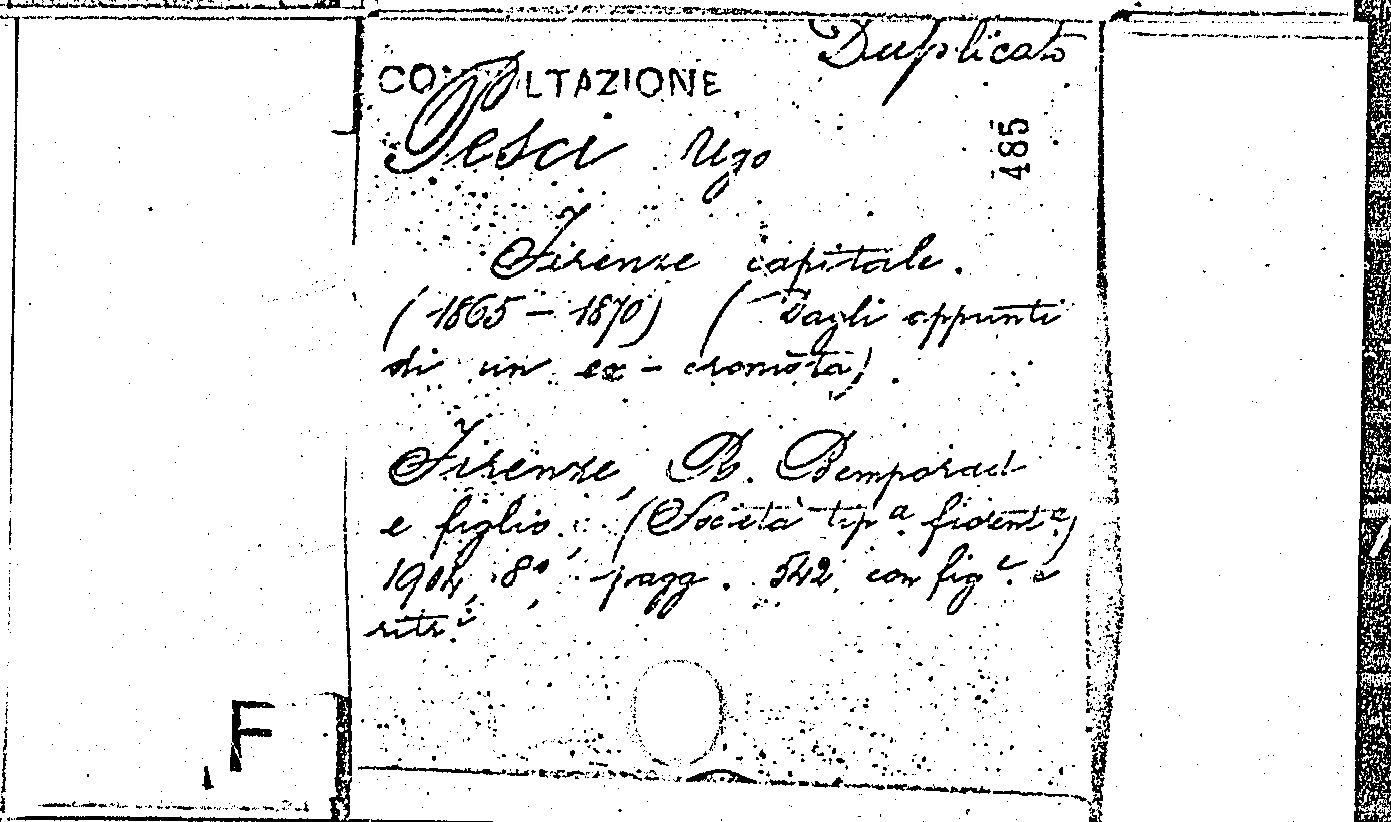 Duplicato
CONSULTAZIONE
Pesci Ugo
485
Firenze capitale.
(1865 - 1870) (Dagli appunti
di un ex-cronista).
Firenze, R. Bemporad
e figlio, (Società tip.ª fiorent.ª)
1904, 8°, pagg. 542. con fig.e e
ritr.i
F